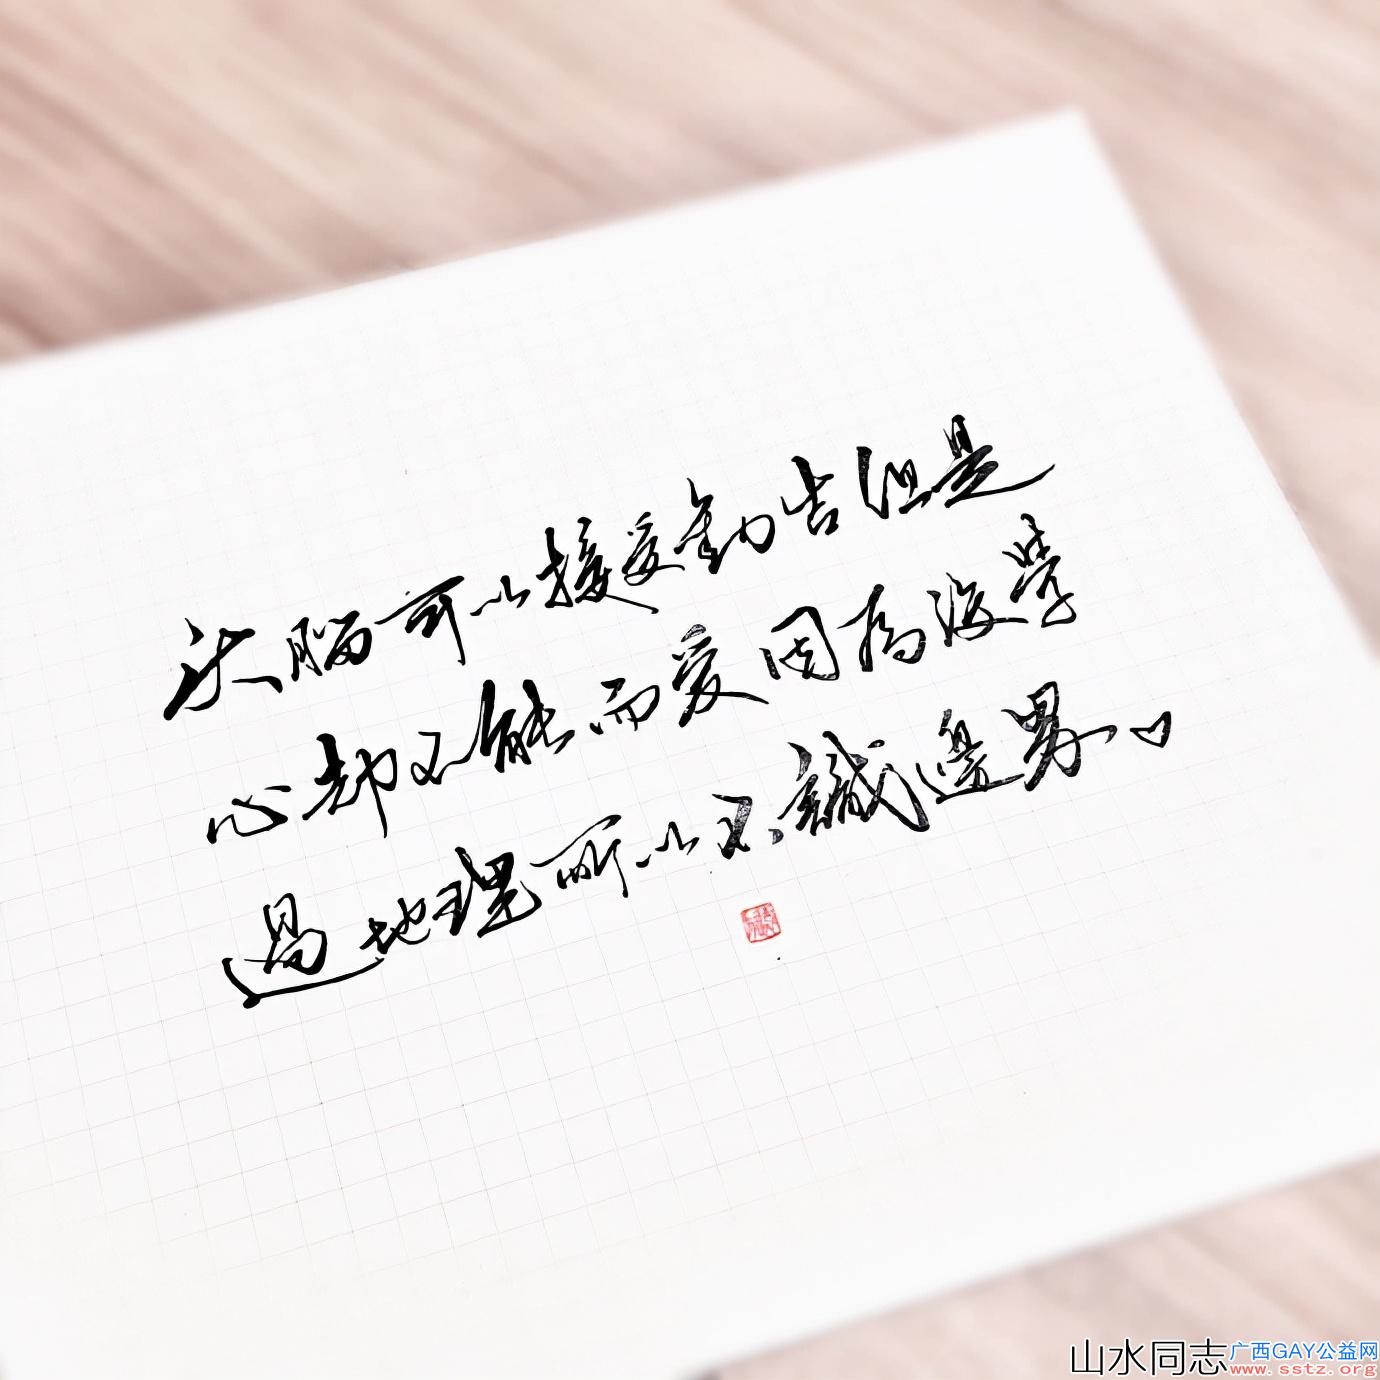 头脑可以接受劝告但是
心却不能而爱因为没学
过地理所以不識邊界。
山水同志广西GAY公益网
www.sstz.org